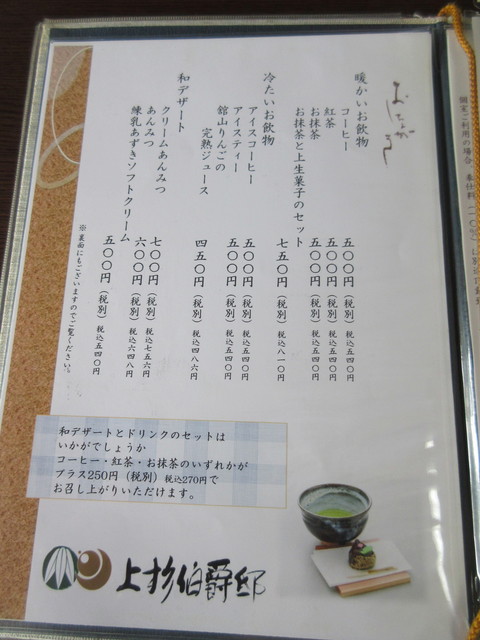 おしながき
暖かいお飲物
コーヒー 五〇〇円（税別）税込五四〇円
紅茶 五〇〇円（税別）税込五四〇円
お抹茶 五〇〇円（税別）税込五四〇円
お抹茶と上生菓子のセット 七五〇円（税別）税込八一〇円
冷たいお飲物
アイスコーヒー 五〇〇円（税別）税込五四〇円
アイスティー 五〇〇円（税別）税込五四〇円
舘山りんごの
完熟ジュース 四五〇円（税別）税込四八六円
和デザート
クリームあんみつ 七〇〇円（税別）税込七五六円
あんみつ 六〇〇円（税別）税込六四八円
練乳あずきソフトクリーム 五〇〇円（税別）税込五四〇円
※裏面にもございますのでご覧ください。
和デザートとドリンクのセットは
いかがでしょうか
コーヒー・紅茶・お抹茶のいずれかが
プラス250円（税別）税込270円で
お召し上がりいただけます。
上杉伯爵邸
個室ご利用の場合、奉仕料